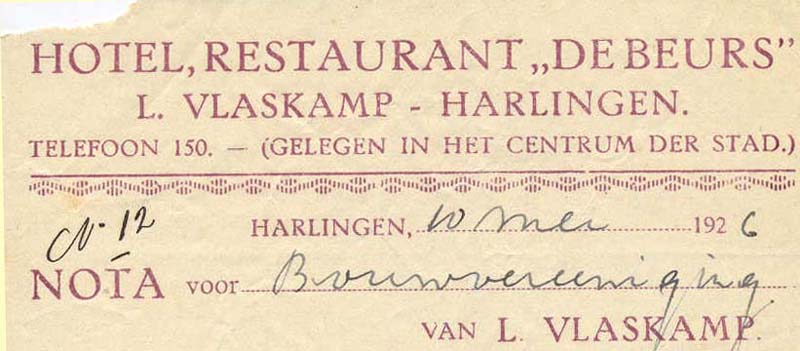 HOTEL, RESTAURANT „DE BEURS"
L. VLASKAMP - HARLINGEN.
TELEFOON 150. — (GELEGEN IN HET CENTRUM DER STAD.)
N. 12
HARLINGEN, 10 Mei 1926
NOTA voor Bouwvereeniging
VAN L. VLASKAMP.